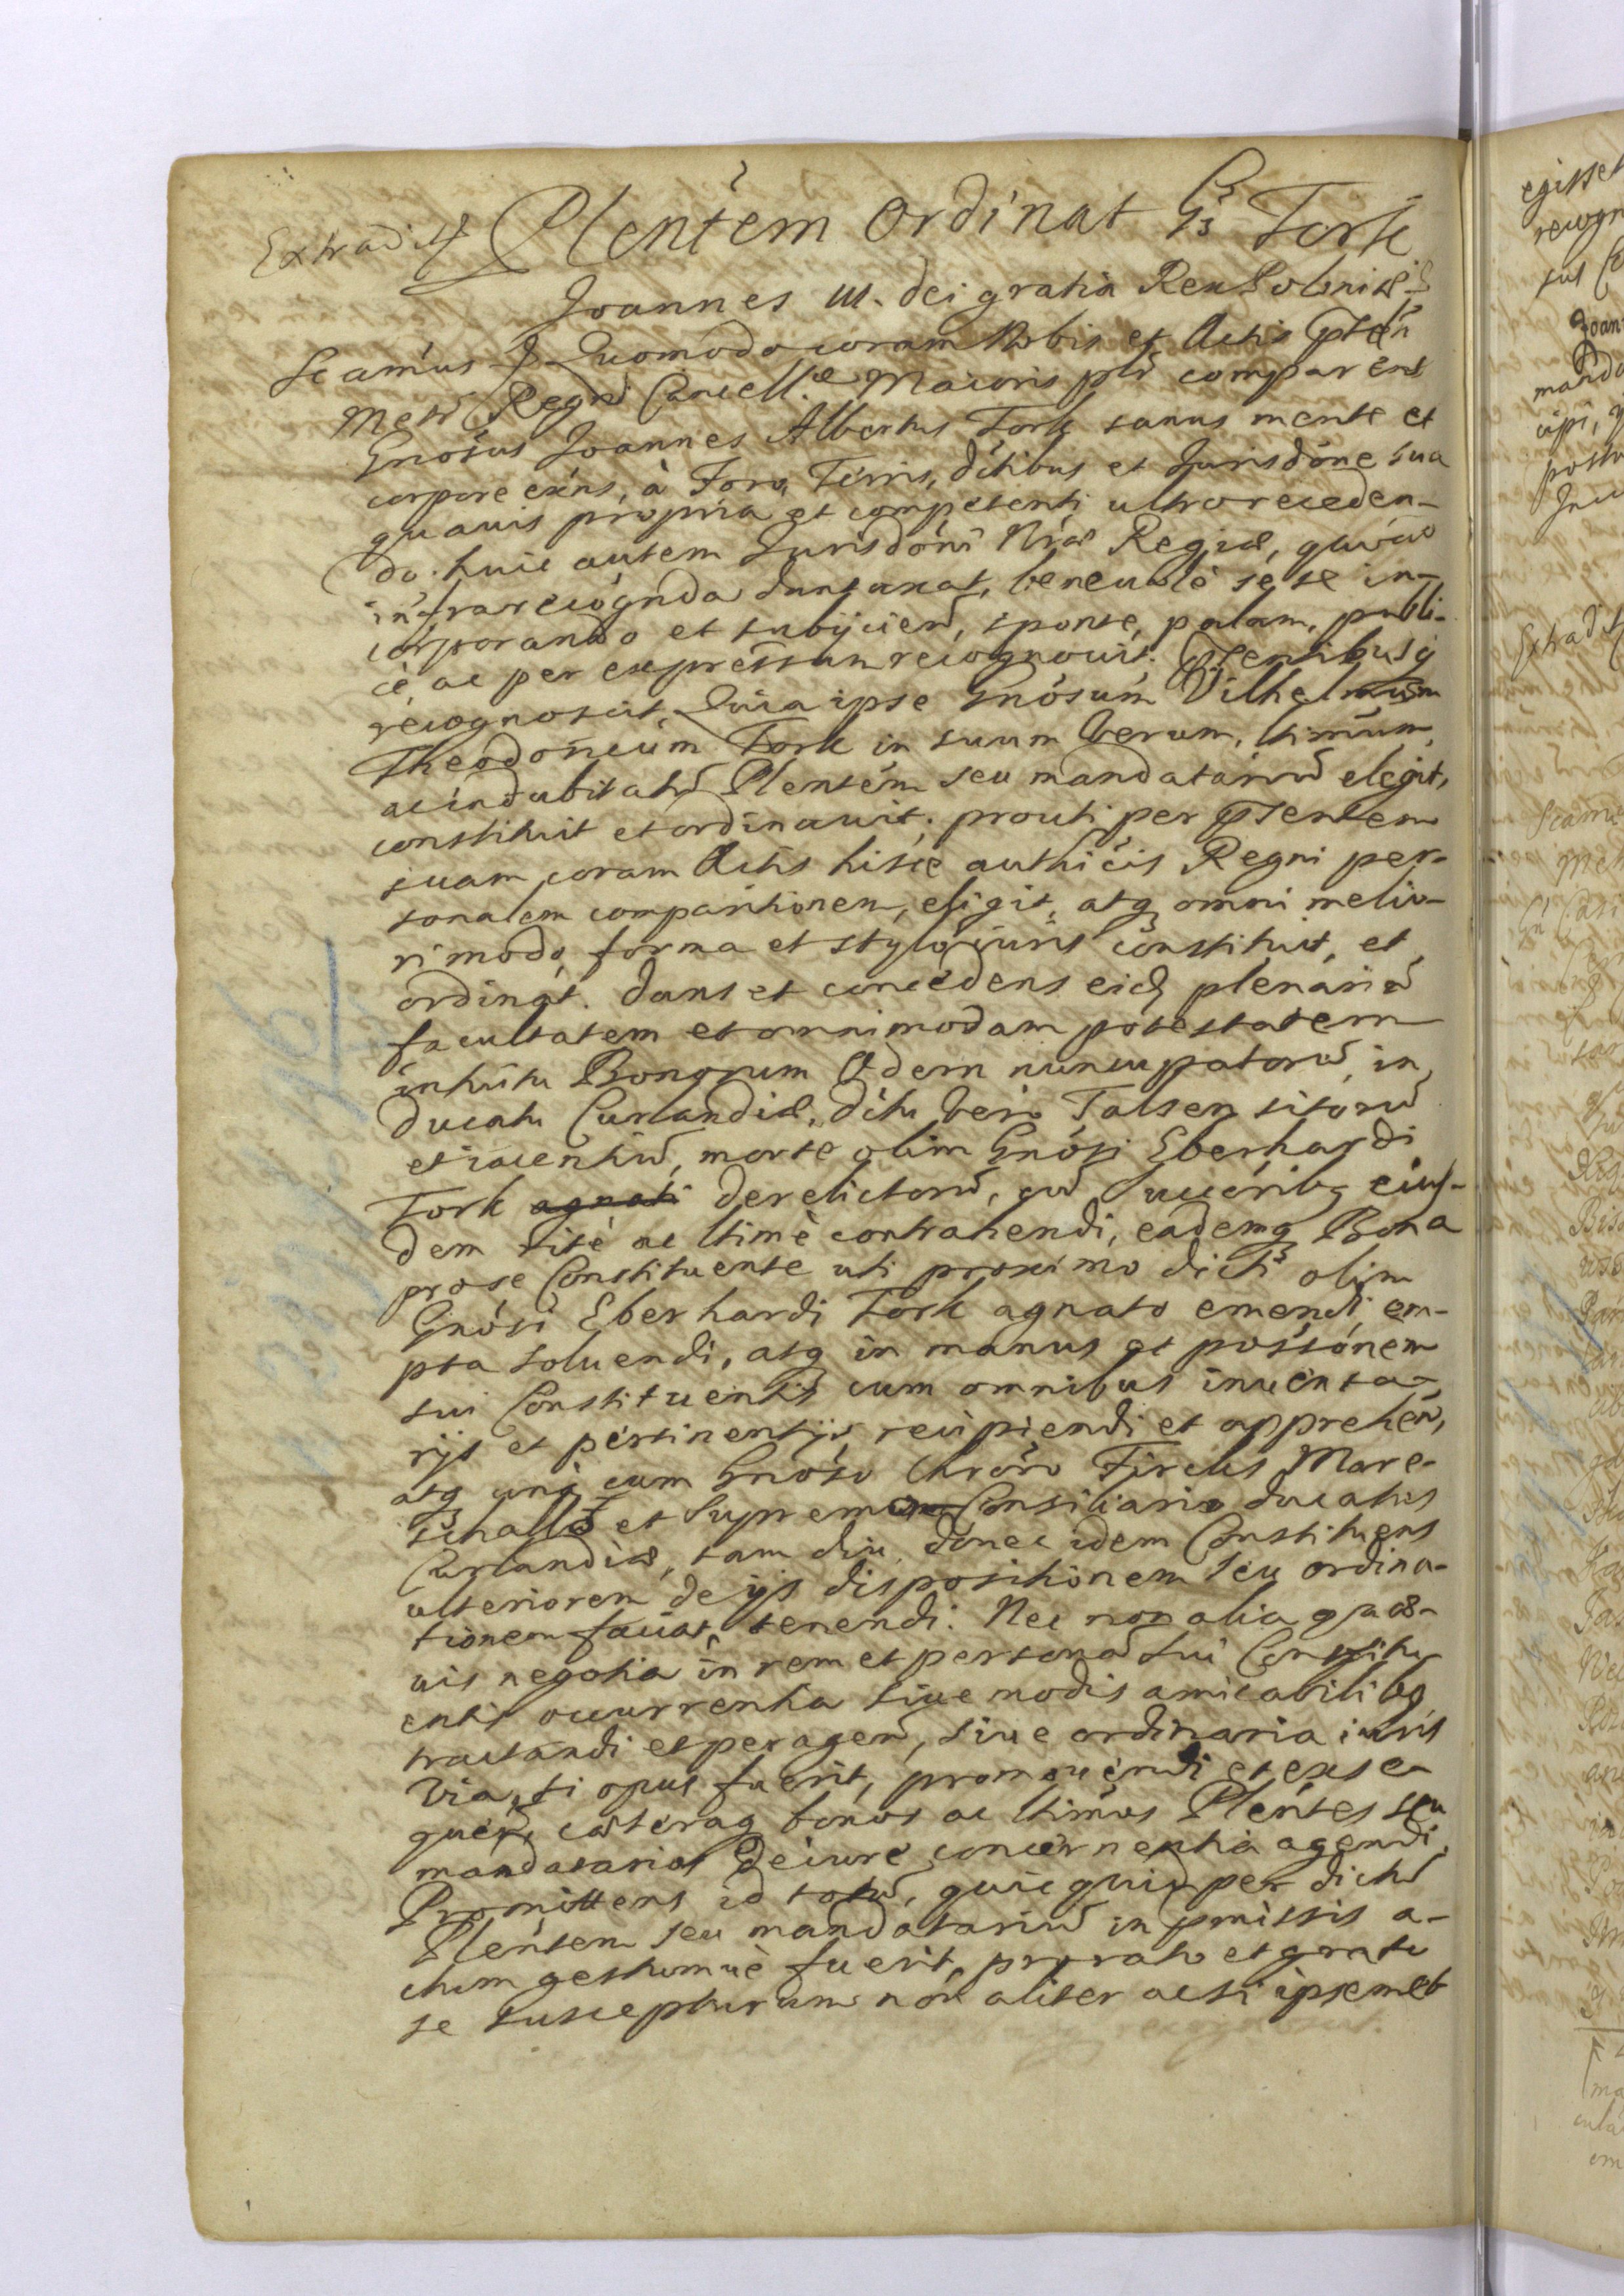 Extradit
Plentem Ordinat Gs Fork
Joannes III. dei gratia Rex Poloniæ
Scamus Quomodo coram Nobis et Actis pnten
Metr Regni Cancell.æ Maioris plr comparens
Gnosus Joannes Albertus Fork sanus mente et
corpore exns, à Foro, Terris, dctibus et Jurisdone sua
quauis propria et competenti ultro receden-
do. huic autem Jurisdoni Nræ Regiæ, quoad
infrarecognda duntaxat, beneuole se se in-
corporando et subijcien, sponte, palam, publi-
cè, ac per expressum recognouit. Pntentibusq
recognoscit, Quia ipse Gnosum Vilhelmum
Theodoricum Fork in suum verum, ltimum,
ac indubitatu Plentem seu mandatariu elegit,
constituit et ordinauit; prouti per pntentem
suam coram Actis hisce authicis Regni per-
sonalem comparitionem, eligit, atq omni melio-
ri modo, forma et stylo iuris constituit, et
ordinat. dans et concedens eid plenariu
facultatem et omnimodam potestatem
intuitu Bonorum Odern nuncupatoru, in
ducatu Curlandiæ, dctu vero Talsen sitoru
et iacentiu, morte olim Gnosi Eberhardi
Fork agnati derelictoru, cu uxcrib eius-
dem ritè ac ltimè contrahendi, eademq Bona
pro se Constituente uti proximo dicti olim
Gnosi Eberhardi Fork agnato emendi, em-
pta soluendi, atq in manus et possonem
sui Constituentis cum omnibus inuenta-
rijs et pertinentijs recipiendi et apprehen,
atq unà cum Gnoso Chroro Fircks Mare-
schallo et Supremo Consiliario ducatus
Curlandiæ, tam diu, donec idem Constituens
ulteriorem de ijs dispositionem seu ordina-
tionem faciat, tenendi. Nec non alia quæ-
uis negotia in rem et persona sui Constitu-
entis occurrentia siue modis amicabilibq
tractandi et peragen, siue ordinaria iuris
via, si opus fuerit, promouendi et exse-
quen, cæteraq bonos ac ltimos Plentes seu
mandatarios de iure concernentia agendi.
Promittens id totu, quicquid per dictu
Plentem seu mandatariu in pmissis a-
ctum gestumuè fuerit, pro rato et grato
se suscepturum non aliter ac si ipsemet